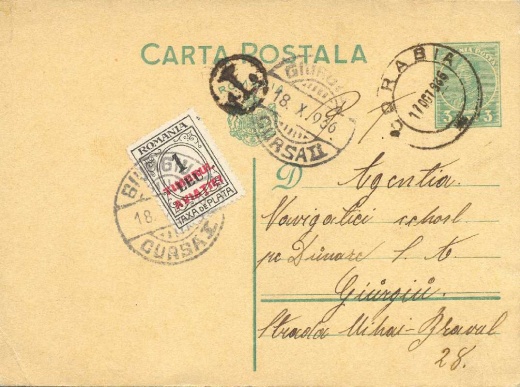 CARTA POSTALA
T
GIURGIU
18. X. 1936
CURSA II
CORABIA
17 OCT 936
3 3
ROMANIA
1
LEU
TIMBRUL
AVIAȚIEI
TAXA DE PLATA
GIURGIU
18.
CURSA II
D
Agentia
Navigatiei
pe Dunare S. A
Giurgiu.
Strada Mihai-Bravul
28.